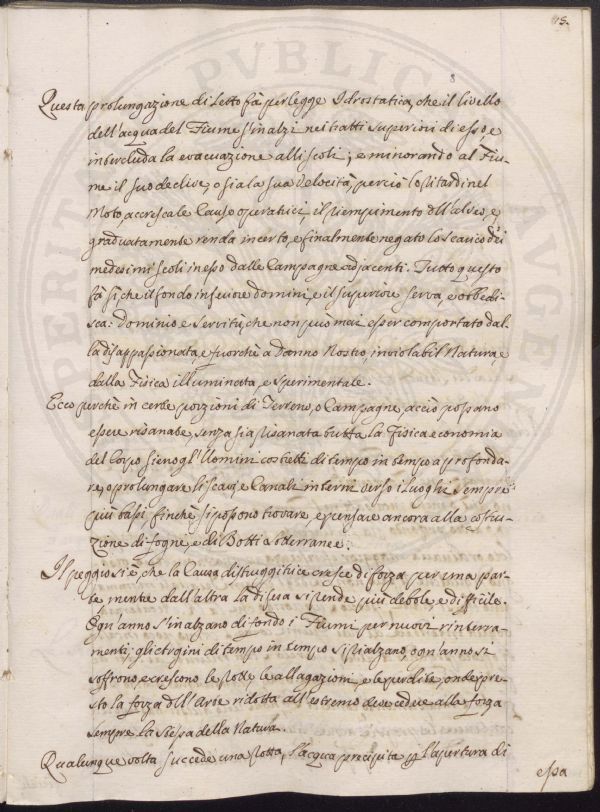 15.
Questa prolungazione di Letto fà per legge Idrostatica, che il livello
dell'acqua del Fiume s'inalzi nei tratti superiori di esso, e
intercluda la evacuazione alli scoli; e minorando al Fiu-
me il suo declive, o sia la sua Velocità, perciò lo ritardi nel
Moto, accresca le Cause operatrici, il riempimento dell'alveo, e
graduatamente renda incerto, e finalmente negato lo scarico dei
medesimi scoli in esso dalle Campagne adjacenti. Tutto questo
fà sì che il fondo inferiore domini, e il superiore serva, e obbedi-
sca: Dominio e Servitù, che non puo mai esser comportato dal-
la disappassionata, e fuorchè a Danno Nostro, inviolabil Natura, e
dalla Fisica illuminata, e sperimentale.
Ecco perchè in certe porzioni di Terreno, o Campagne, acciò possano
essere risanate, senza sia risanata tutta la Fisica economia
del Corpo sieno gl'Uomini costretti di tempo in tempo a profonda-
re, o prolungare li scavi, e Canali interni verso i Luoghi sempre
più bassi finchè si possono trovare, e pensare ancora alla costru-
zione di fogne, e di Botti sotterranee.
Il peggio si è, che la Causa distruggitrice cresce di forza per una par-
te, mentre dall'altra la difesa si rende più debole, e difficile.
Ogn'anno s'inalzano di fondo i Fiumi per nuovi rinterra-
menti; gli argini di tempo in tempo si rialzano, ogn'anno si
soffrono, e crescono le rotte, le allagazioni, e le perdite, onde pre-
sto la forza dell'Arte ridotta all'estremo deve cedere alla forza
sempre la stessa della Natura.
Qualunque volta succede una Rotta, l'acqua precipita per l'apertura di
essa
PERITA PVBLICA AVGEN